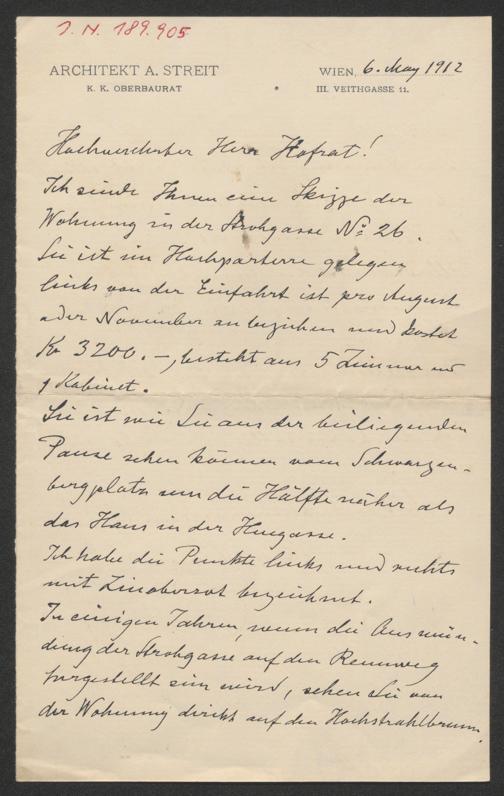 J. N. 189.905
ARCHITEKT A. STREIT
K. K. OBERBAURAT
WIEN, 6. May 1912
III. VEITHGASSE 11.
Hochverehrter Herr Hofrat!
Ich sende Ihnen eine Skizze der
Wohnung in der Strohgasse No 26.
Sie ist im Hochparterre gelegen
links von der Einfahrt ist pro August
oder November zu beziehen und kostet
Kr 3200.—, besteht aus 5 Zimmer und
1 Kabinet.
Sie ist wie Sie aus der beiliegenden
Pause sehen können vom Schwarzen-
bergplatz um die Hälfte näher als
das Haus in der Heugasse.
Ich habe die Punkte links und rechts
mit Zinoberrot bezeichnet.
In einigen Jahren, wenn die Ausmün-
dung der Strohgasse auf den Rennweg
hergestellt sein wird, sehen Sie von
der Wohnung direkt auf den Hochstrahlbrunn.